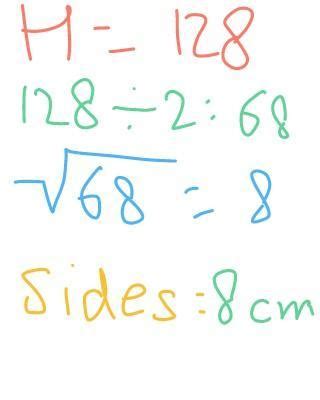 H = 128
128 ÷ 2 : 68
√68 = 8
Sides : 8 cm